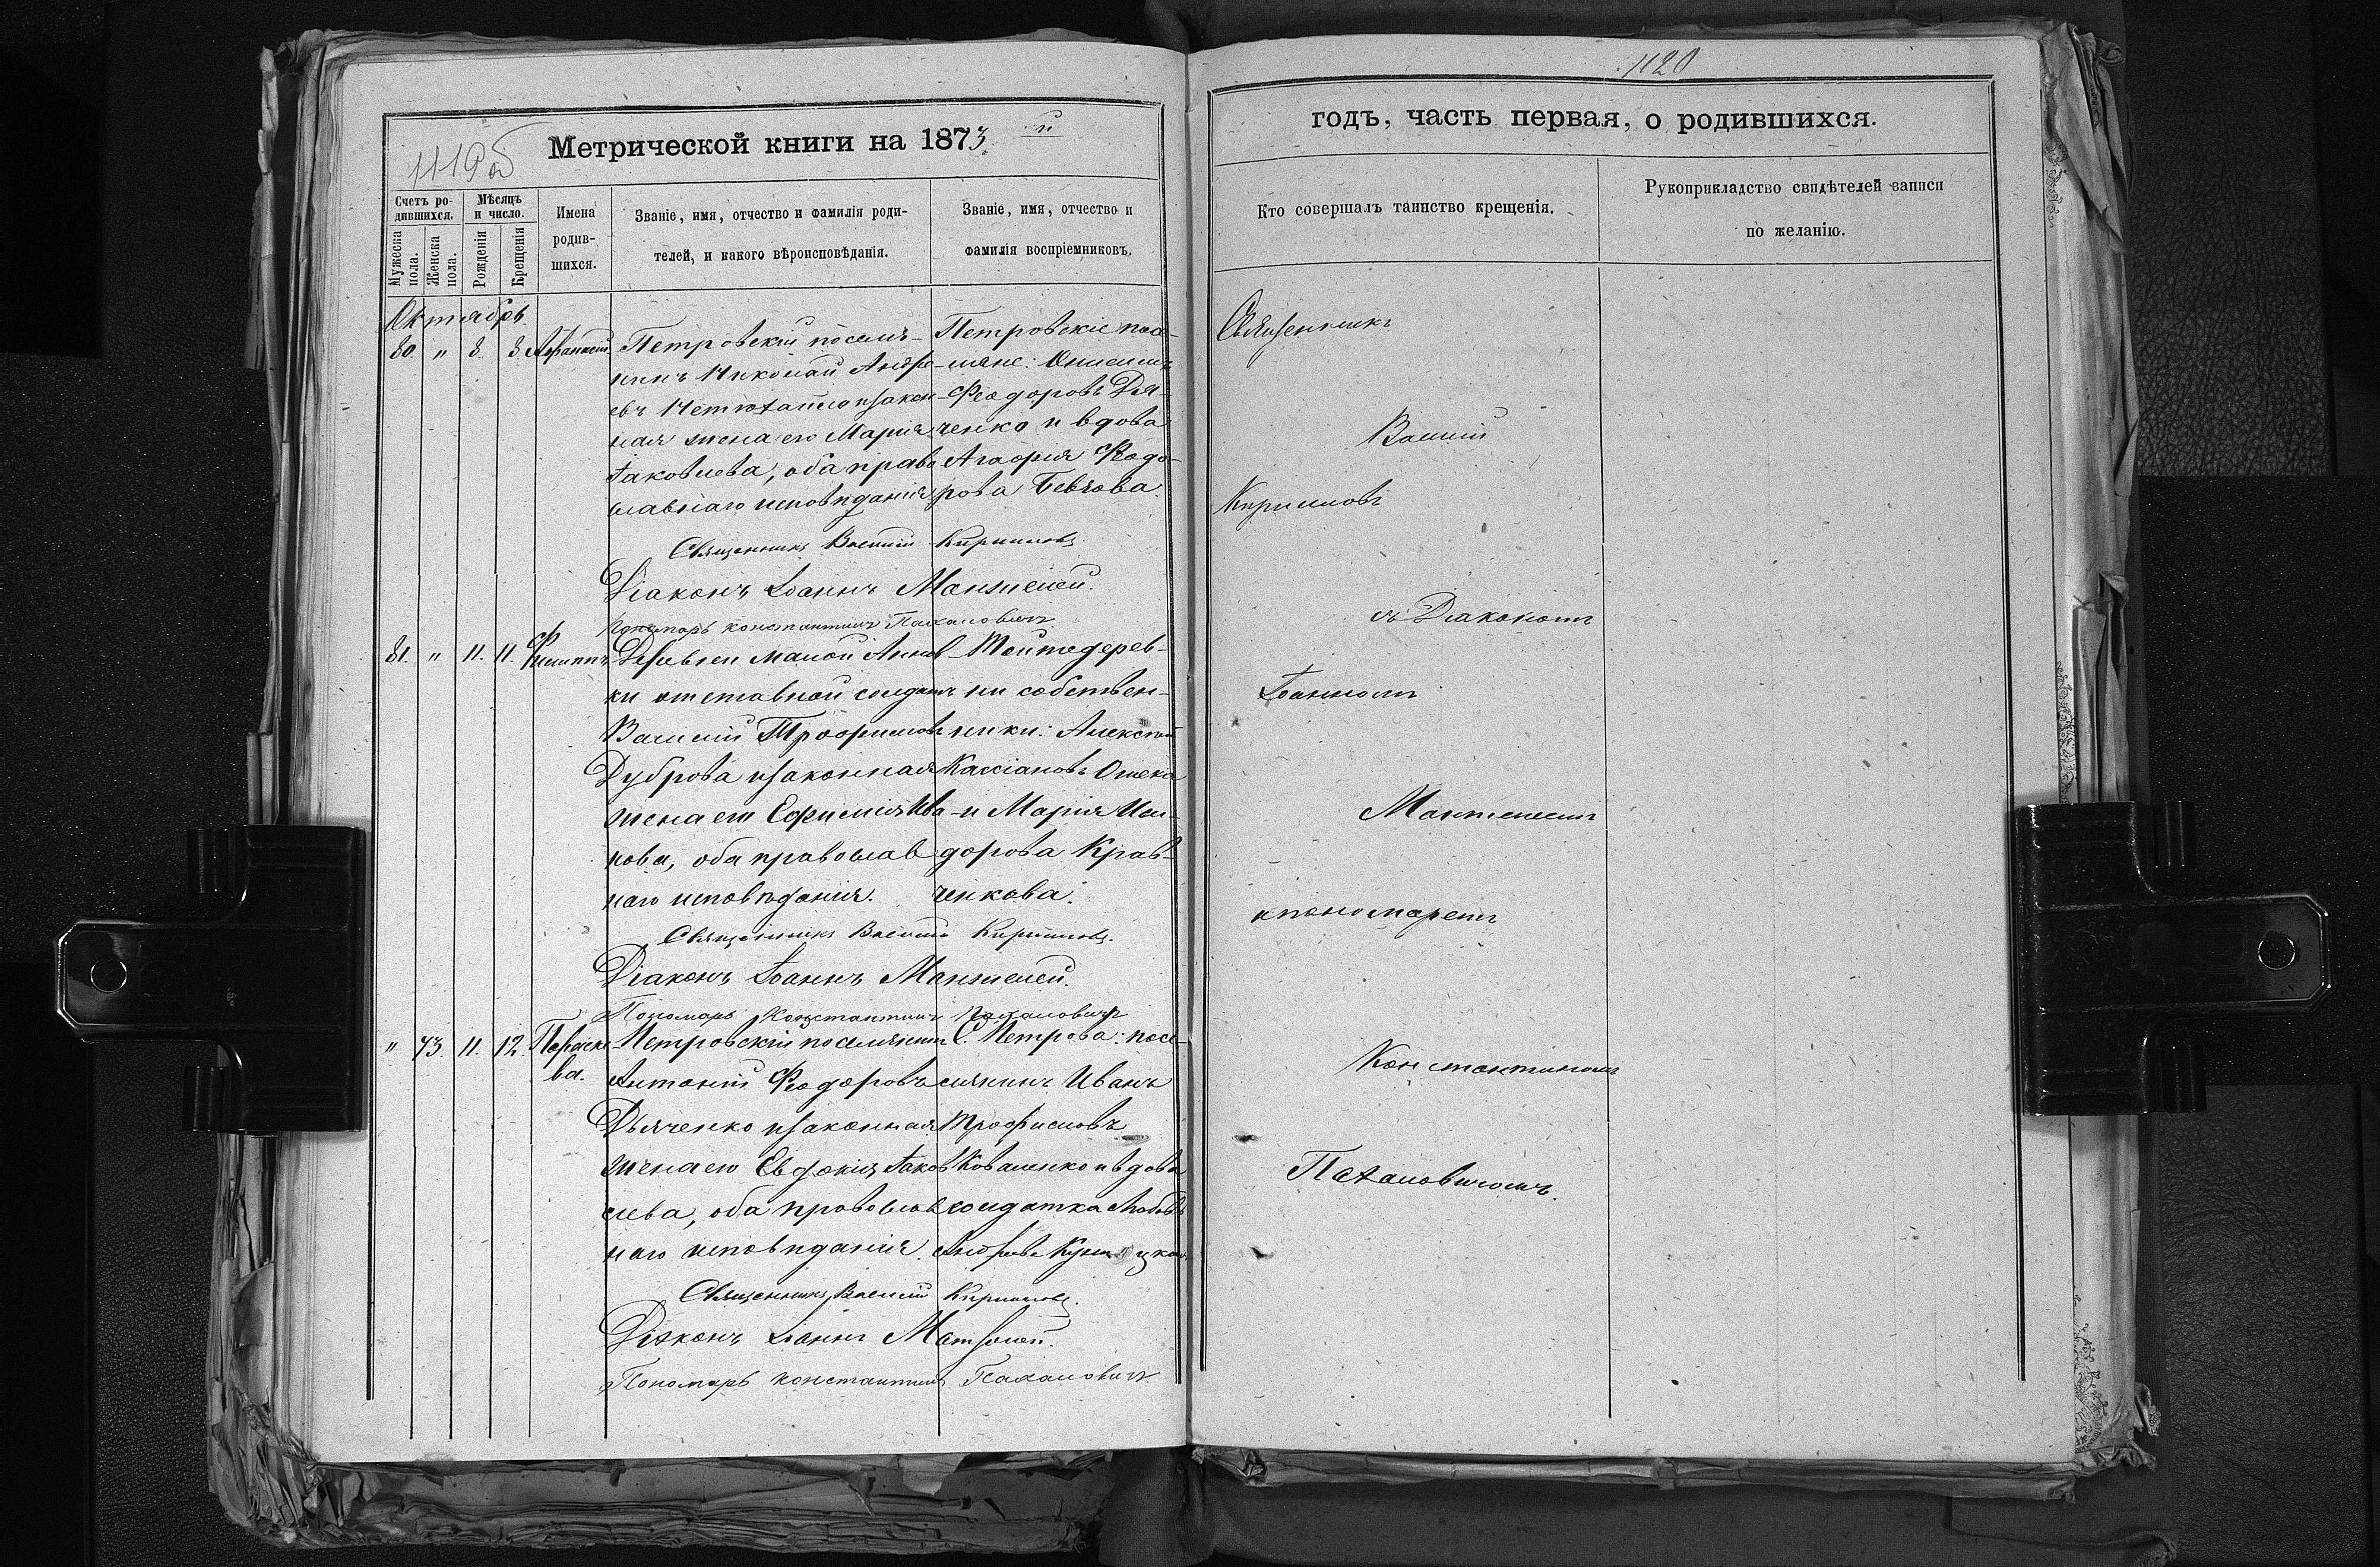 1119 об
Метрической книги на 1873 й
Счетъ ро-
дившихся.
Мѣсяцъ
и число.
Мужеска
пола.
Женска
пола.
Рожденія
Крещенія
Имена
родив-
шихся.
Званіе, имя, отчество и фамилія роди-
телей, и какого вѣроисповѣданія.
Званіе, имя, отчество и
фамилія воспріемниковъ.
Октябрь.
80. " 8. 8. Афанасій
Петровскій поселя-
нинъ Николай Андре-
евъ и закон-
ная жена его Марія
Іаковлева, оба право
славнаго исповѣданія
Петровскіе посе-
ляне: Онисимъ
Феодоровъ Дья-
ченко и вдова
Агафія Феодо-
рова Бевзова.
Священникъ Василій Кирилловъ
Діаконъ Іоаннъ Манжелей.
Пономарь Константинъ Пахаловичъ
81. " 11. 11. Филиппъ
Деревни Малой Аннов-
ки отставной солдатъ
Василій Трофимовъ
Дуброва и законная
жена его Ефимія Ива-
нова, оба православ
наго исповѣданія.
Той же дерев-
ни собствен-
ники: Алексѣй
Кассіановъ
и Марія Иси-
дорова Крав-
ченкова.
Священникъ Василій Кирилловъ.
Діаконъ Іоаннъ Манжелей.
Пономарь Константинъ Пахаловичъ
" 73. 11. 12. Параске-
ва.
Петровскій поселянинъ
Антоній Феодоровъ
Дьяченко и законная
жена его Евдокія Іаков
лева, оба православ
наго исповѣданія.
С. Петрова: посе-
лянинъ Иванъ
Трофимовъ
Коваленко и вдова
солдатка Любовь
Андреева
Священникъ Василій Кирилловъ.
Діаконъ Іоаннъ Манжелей.
Пономарь Константинъ Пахаловичъ
1120
годъ, часть первая, о родившихся.
Кто совершалъ таинство крещенія.
Рукоприкладство свидѣтелей записи
по желанію.
Священникъ
Василій
Кирилловъ
съ Діакономъ
Іоанномъ
Манжелеемъ
и пономаремъ
Константиномъ
Пахаловичомъ.